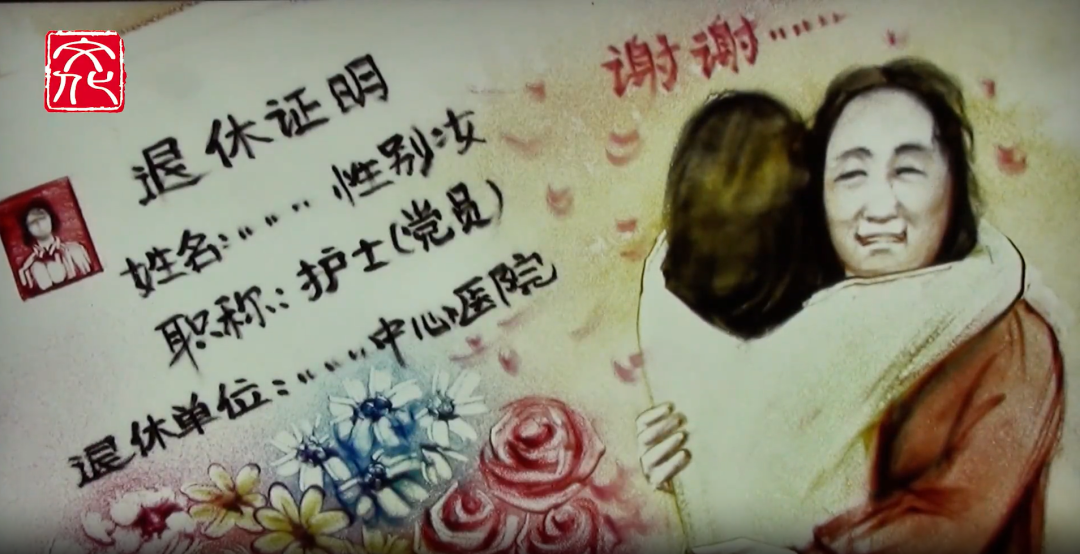 文化
谢谢……
退休证明
姓名：…… 性别：女
职称：护士（党员）
退休单位：……中心医院